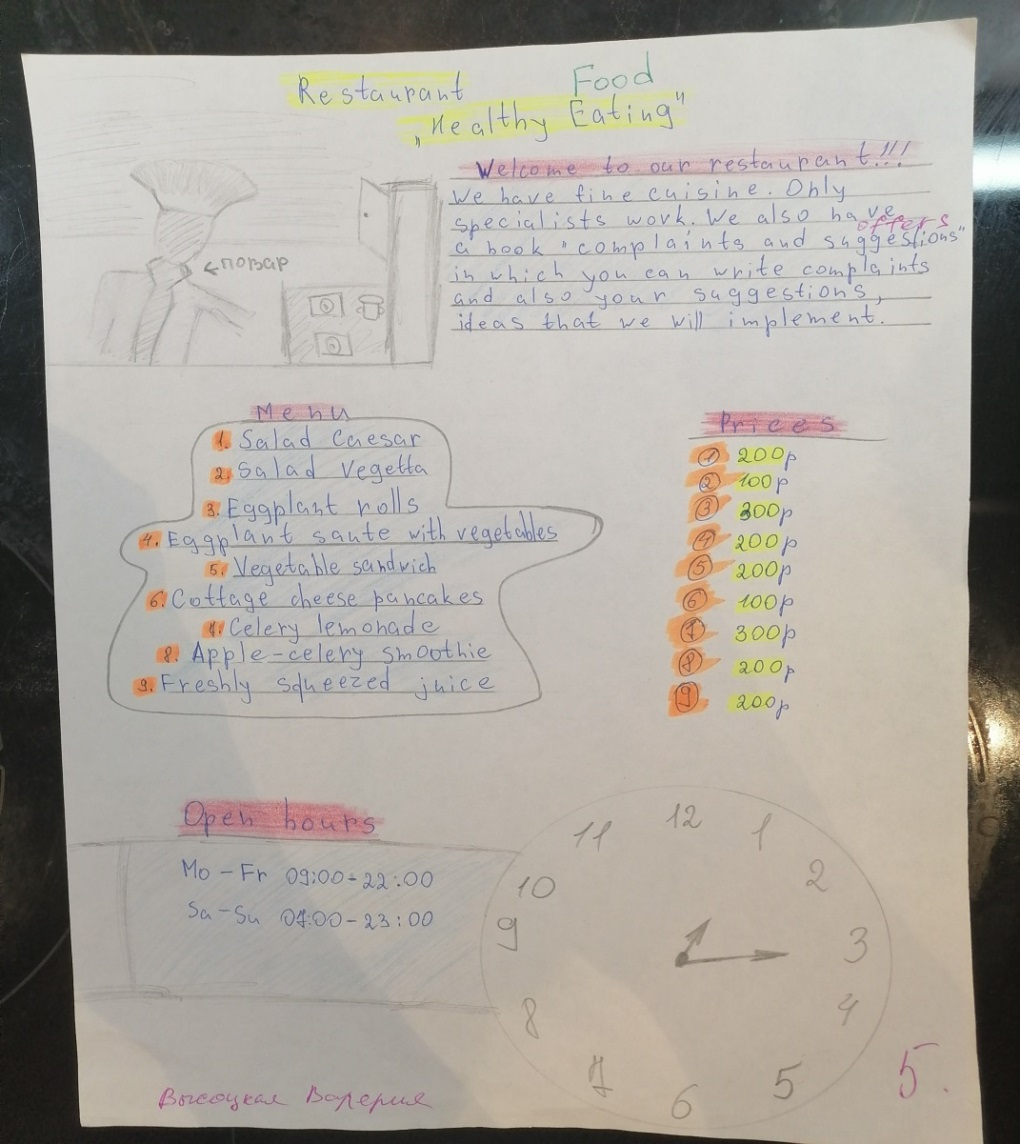 Restaurant Food
„Healthy Eating"
Welcome to our restaurant!!!
We have fine cuisine. Only
specialists work. We also have
offers
a book "complaints and suggestions"
in which you can write complaints
and also your suggestions,
ideas that we will implement.
←повар
Menu
1. Salad Caesar
2. Salad Vegetta
3. Eggplant rolls
4. Eggplant saute with vegetables
5. Vegetable sandwich
6. Cottage cheese pancakes
7. Celery lemonade
8. Apple-celery smoothie
9. Freshly squeezed juice
Prices
1 200р
2 100р
3 300р
4 200р
5 200р
6 100р
7 300р
8 200р
9 200р
Open hours
Mo-Fr 09:00-22:00
Sa-Su 07:00-23:00
12
11 1
10 2
9 3
8 4
7 5
6
5.
Высоцкая Валерия